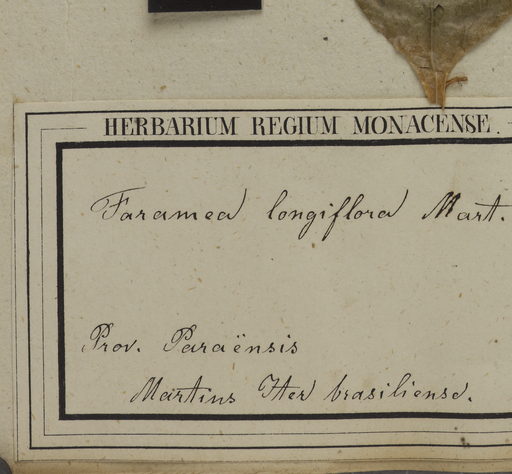 HERBARIUM REGIUM MONACENSE.
Faramea longiflora Mart.
Prov. Paraënsis
Martius Iter brasiliense.